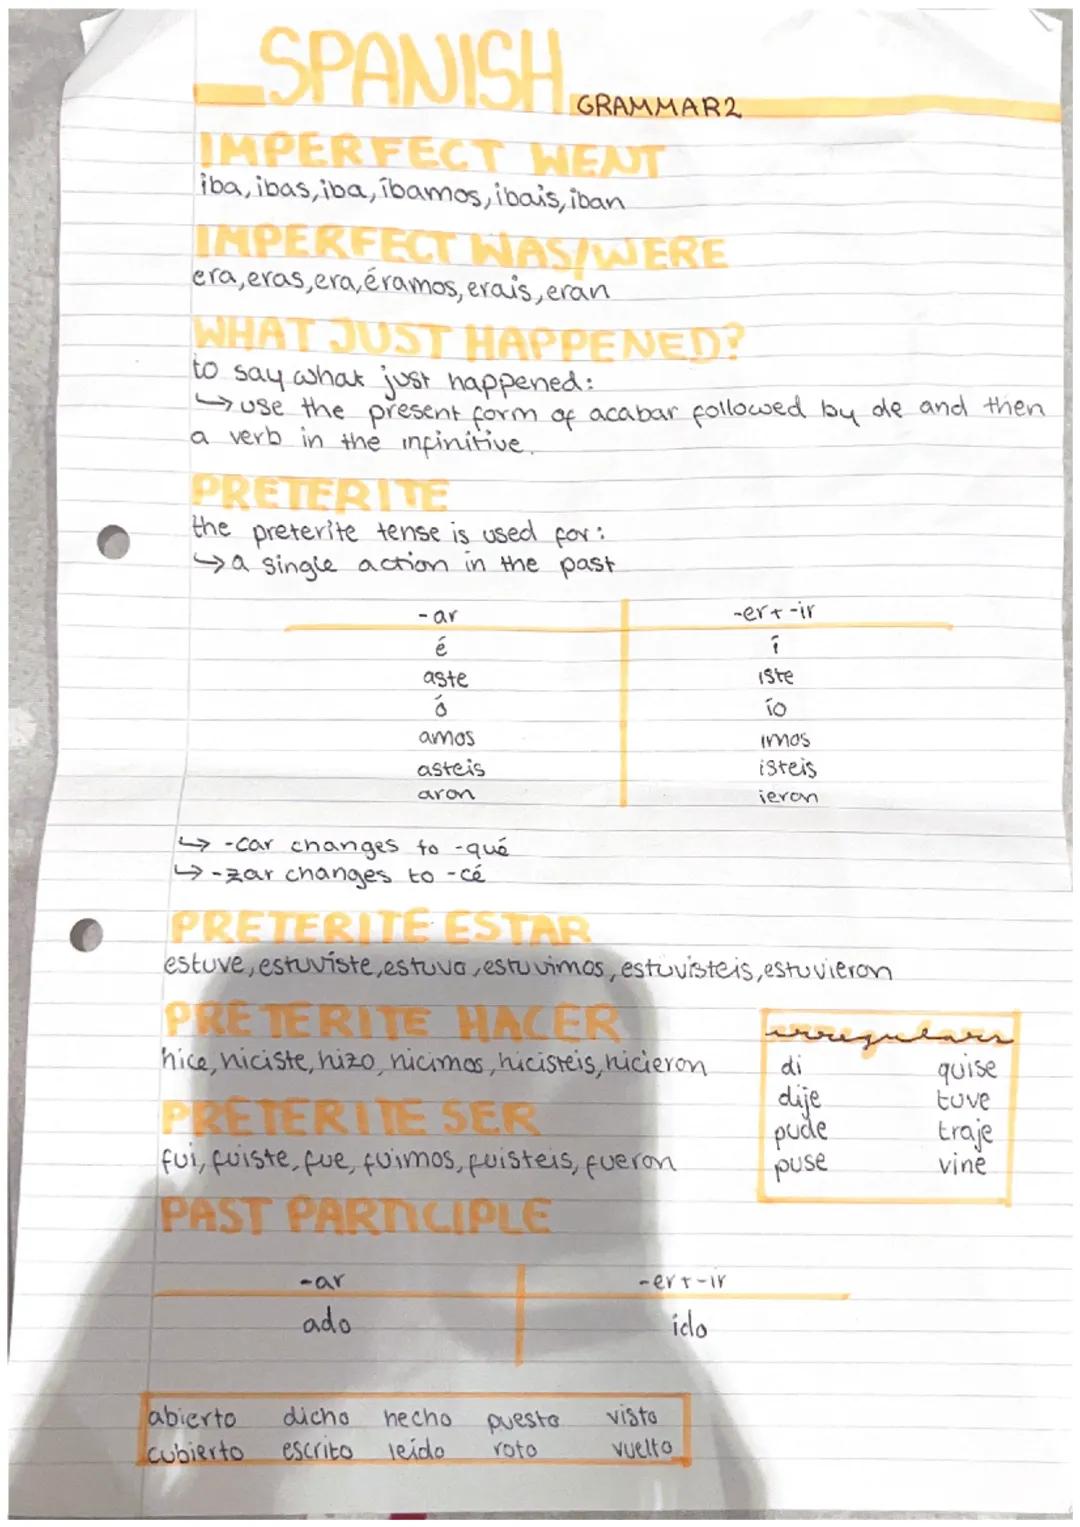 SPANISH
GRAMMAR 2
IMPERFECT WENT
iba, ibas, iba, íbamos, ibais, iban
IMPERFECT WAS/WERE
era, eras, era, éramos, erais, eran
WHAT JUST HAPPENED?
to say what just happened:
↳ use the present form of acabar followed by de and then
a verb in the infinitive.
PRETERITE
the preterite tense is used for:
↳ a single action in the past
-ar -er + -ir
é í
aste iste
ó ío
amos imos
asteis isteis
aron ieron
↳ -car changes to -qué
↳ -zar changes to -cé
PRETERITE ESTAR
estuve, estuviste, estuvo, estuvimos, estuvisteis, estuvieron
PRETERITE HACER
hice, hiciste, hizo, hicimos, hicisteis, hicieron
irregulars
di quise
dije tuve
pude traje
puse vine
PRETERITE SER
fui, fuiste, fue, fuimos, fuisteis, fueron
PAST PARTICIPLE
-ar -er + -ir
ado ido
abierto dicho hecho puesto visto
cubierto escrito leído roto vuelto